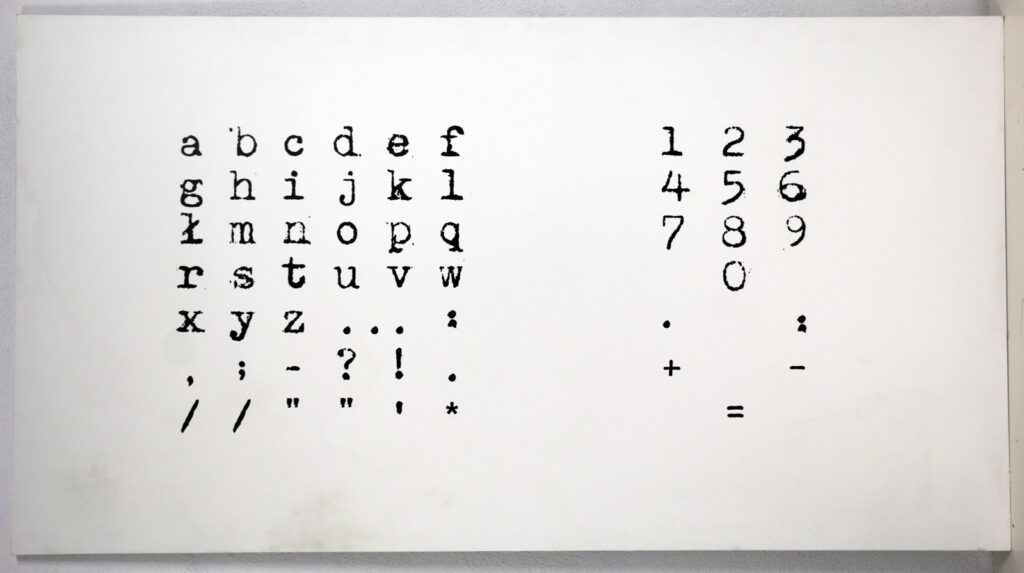 a b c d e f 1 2 3
g h i j k l 4 5 6
ł m n o p q 7 8 9
r s t u v w 0
x y z ... : . :
, ; - ? ! . + -
/ / " " ' * =